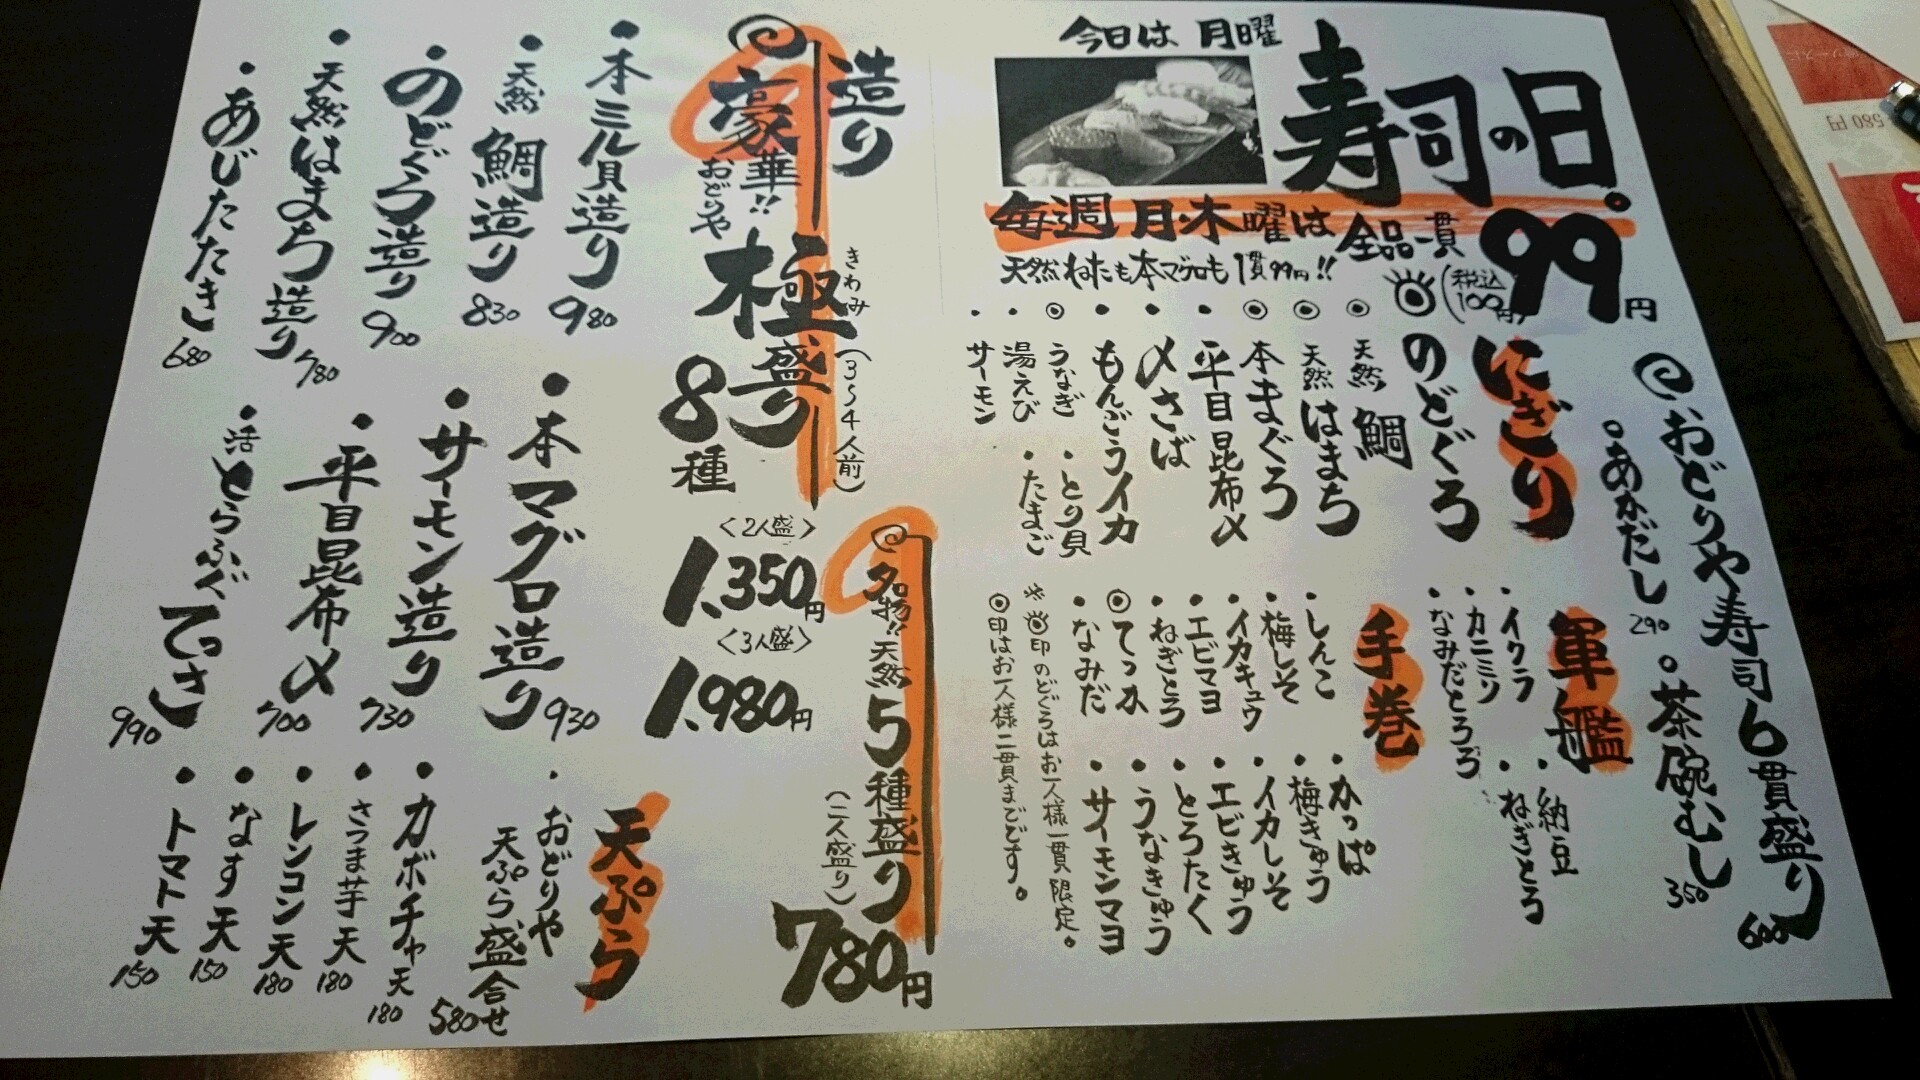 今日は 月曜
寿司の日。
毎週 月・木曜は 全品一貫 99円
(税込108円)
天然ねたも本マグロも1貫99円!!
おどりや寿司6貫盛り 600
あかだし 290
茶碗むし 350
にぎり
のどぐろ
天然 鯛
天然 はまち
本まぐろ
平目昆布〆
〆さば
もんごうイカ
うなぎ
とり貝
湯えび
たまご
サーモン
軍艦
イクラ
納豆
カニミソ
ねぎとろ
なみだとろろ
手巻
しんこ
かっぱ
梅しそ
梅きゅう
イカキュウ
イカしそ
エビマヨ
エビきゅう
ねぎとろ
とろたく
てっか
うなきゅう
なみだ
サーモンマヨ
※印のどぐろはお一人様一貫限定。
◎印はお一人様二貫までです。
造り
豪華!!
おどりや
極盛り
きわみ
(3〜4人前)
8種
<2人盛>
1,350円
<3人盛>
1,980円
名物!!天然5種盛り
(二人盛り)
780円
・本ミル貝造り 980
・天然 鯛造り 830
・のどぐろ造り 900
・天然はまち造り 780
・あじたたき 680
・本マグロ造り 930
・サーモン造り 730
・平目昆布〆 700
・活とらふぐてっさ 990
天ぷら
・おどりや天ぷら盛合せ 580
・カボチャ天 180
・さつま芋天 180
・レンコン天 180
・なす天 150
・トマト天 150
580円